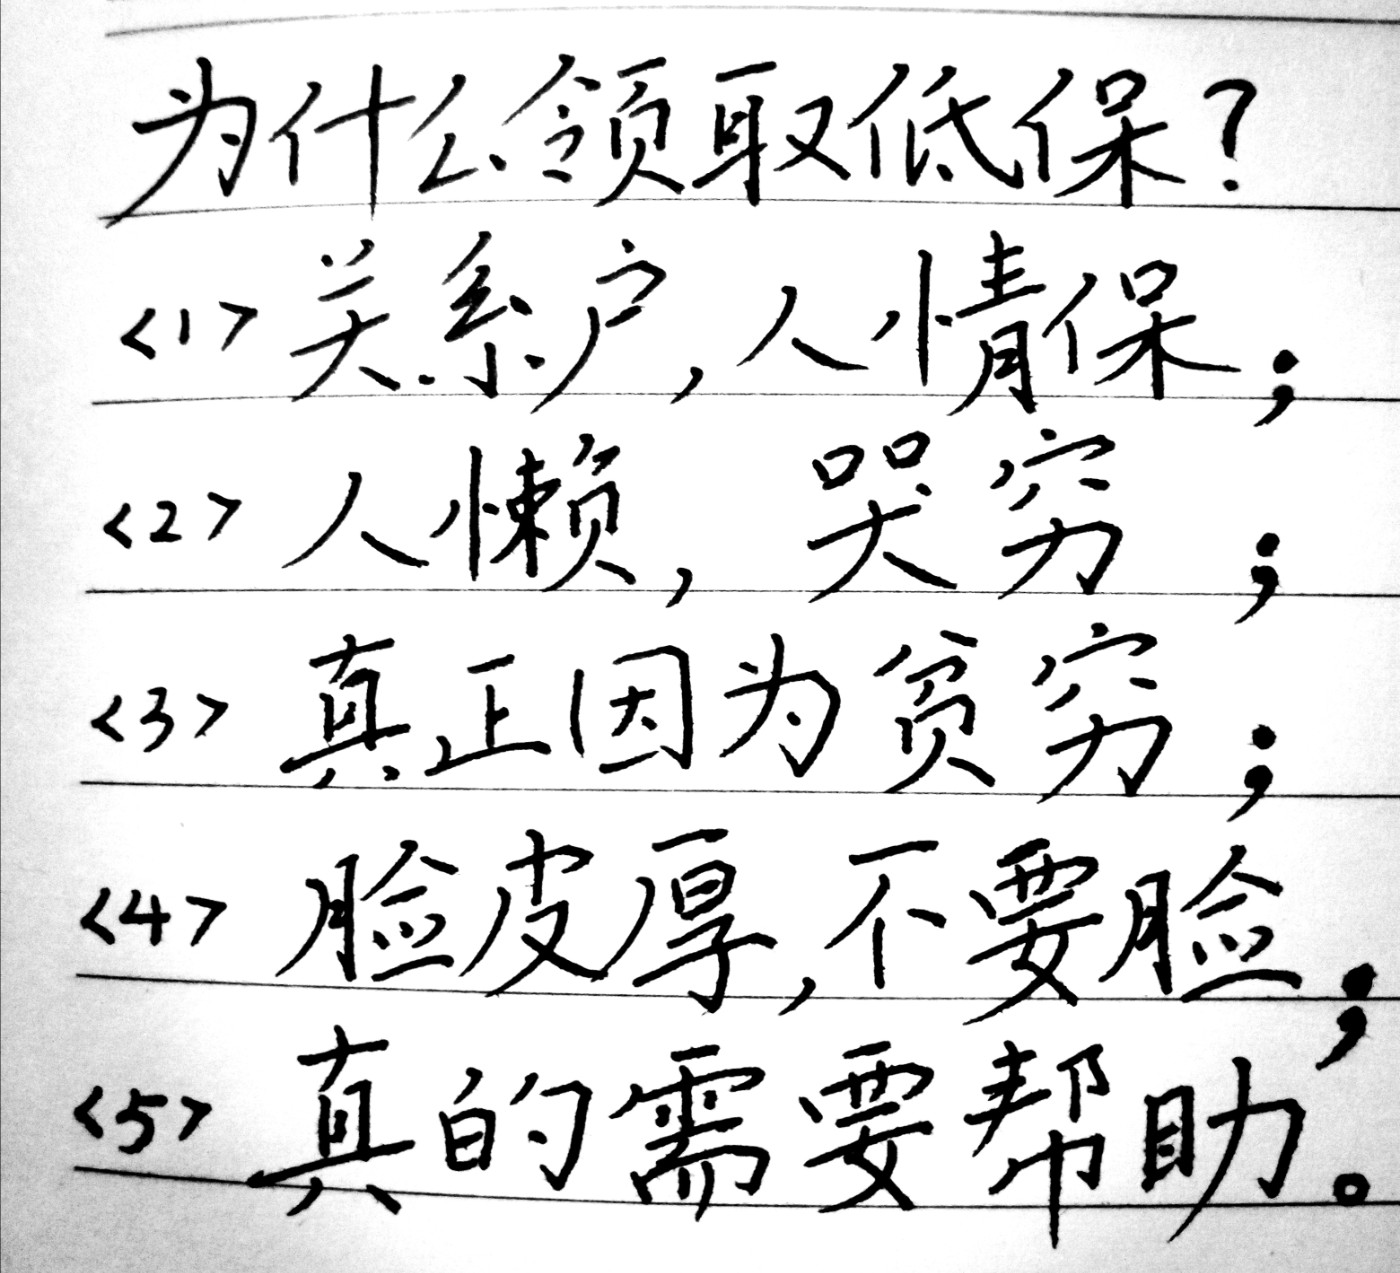 为什么领取低保?
<1> 关系户,人情保;
<2> 人懒,哭穷;
<3> 真正因为贫穷;
<4> 脸皮厚,不要脸;
<5> 真的需要帮助。